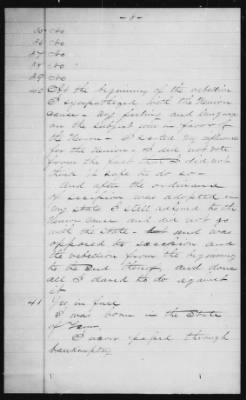 - 8 -
35 No
36 No
37 No
38 No
39 No
40 At the beginning of the rebellion
I sympathized with the Union
cause - My feeling and language
on the subject was in favor of
the Union - I exerted my influence
for the Union - I did not vote
from the fact that I did not
think it safe to do so -
And after the ordinance
of secession was adopted in
my State I still adhered to the
Union cause and did not go
with the State - but and was
opposed to secession and
the rebellion from the beginning
to the end thereof, and done
all I dared to do against
it
41 Yes in full
I was born in the State
of Tenn.
I never passed through
bankruptcy